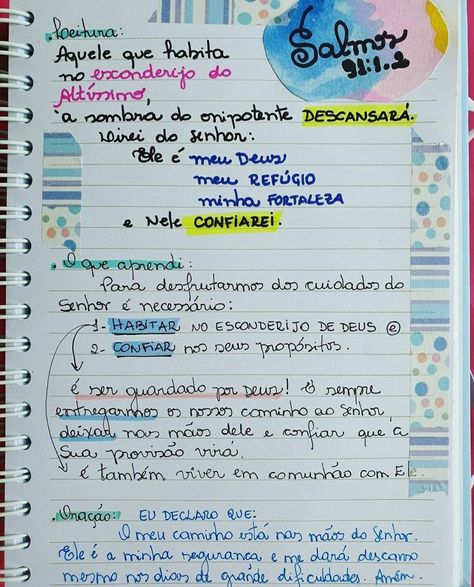 . Leitura:
Salmos
91:1.2
Aquele que habita
no esconderijo do
Altíssimo,
à sombra do onipotente DESCANSARÁ.
Direi do Senhor:
Ele é meu Deus
meu REFÚGIO
minha FORTALEZA
e Nele CONFIAREI.
. O que aprendi:
Para desfrutarmos dos cuidados do
Senhor é necessário:
1- HABITAR NO ESCONDERIJO DE DEUS e
2- CONFIAR nos seus propósitos.
é ser guardado por Deus! É sempre
entregarmos os nossos caminho ao Senhor,
deixar nas mãos dele e confiar que a
Sua provisão virá.
é também viver em comunhão com Ele.
. Oração: EU DECLARO QUE:
O meu caminho está nas mãos do Senhor.
Ele é a minha segurança e me dará descanso
mesmo nos dias de grande dificuldades. Amém.